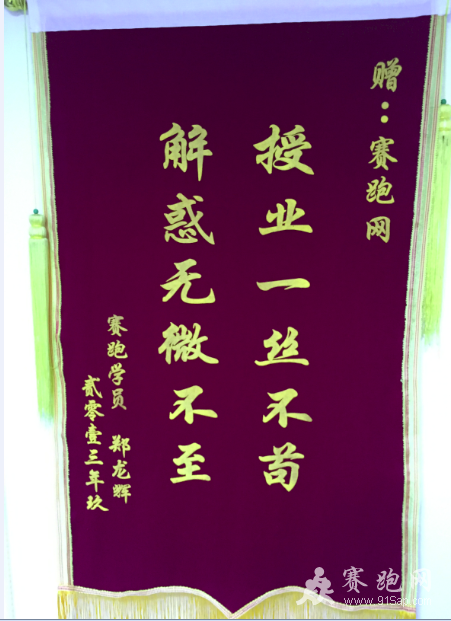 赠：赛跑网
授业一丝不苟
解惑无微不至
赛跑学员 郑龙辉
贰零壹三年玖
赛跑网